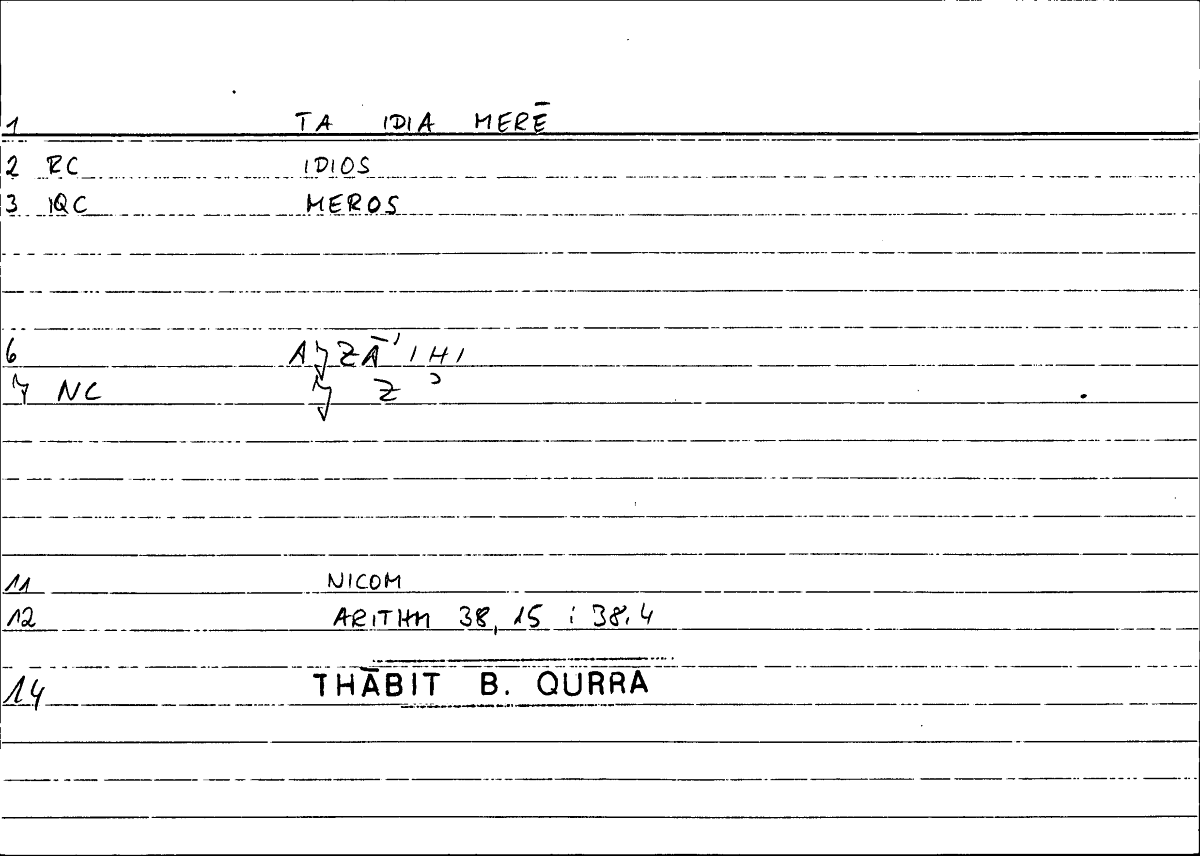 1 TA IDIA MERĒ
2 RC IDIOS
3 IQC MEROS
6 AǦZĀ'IHI
7 NC Ǧ Z ʾ
11 NICOM
12 ARITHM 38,15 ; 38.4
14 THĀBIT B. QURRA